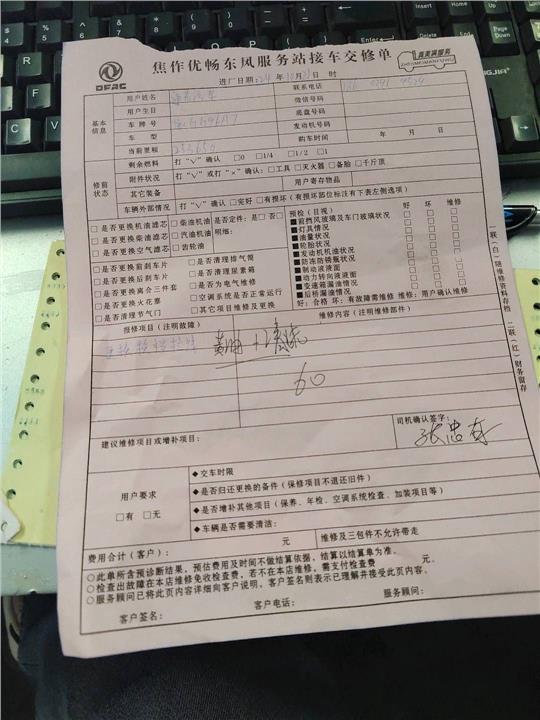 焦作优畅东风服务站接车交修单
DFAC
真美满服务
ZHENMEIMANFUWU
进厂日期: 24年10月 日 时
基本信息
用户姓名
联系电话
用户生日
微信号码
车牌号
底盘号
车型
发动机号码
当前里程 253650
购车时间 年 月 日
修前状态
剩余燃料 打“V”确认 □0 □1/4 □1/2 □1
附件状况 打“V”或打“×”确认: □工具 □灭火器 □备胎 □千斤顶
其它装备
用户寄存物品
车辆外部情况 打“V”确认 □完好 □有损坏(有损坏部位标注有下表左侧选项)
□是否更换机油滤芯 □柴油机油 □是否定件: □是 □否
□是否更换柴油滤芯 □汽油机油 明细:
□是否更换空气滤芯 □齿轮油
□是否更换前刹车片 □是否清理排气筒
□是否更换后刹车片 □是否清理尿素箱
□是否更换离合三件套 □是否为电气维修
□是否更换火花塞 □空调系统是否正常运行
□是否清理节气门 □其它项目修及更换
预检(目视) 好 坏 维修
■前挡风玻璃及车门玻璃状况 □ □ □
■灯具情况 □ □ □
■油量状况 □ □ □
■轮胎状况 □ □ □
■发动机机油状况 □ □ □
■防冻防锈瓶状况 □ □ □
■制动液液面 □ □ □
■动力转向液面 □ □ □
■变速箱漏油情况 □ □ □
■后桥漏油情况 □ □ □
好: 合格 坏: 有故障需维修 维修: 用户确认维修
报修项目(注明故障)
维修内容(注明维修部件)
黄油
60
建议维修项目或增补项目:
司机确认签字:
用户要求
□有 □无
◆交车时限
◆是否归还更换的备件(保修项目不退还旧件)
◆是否增补其他项目(保养、年检、空调系统检查、加装项目等)
◆车辆是否需要清洁:
费用合计(客户): 元
维修及三包件不允许带走
○此单所含预诊断结果,预估费用及时间不做结算依据,结算以结算单为准。
○检查出故障在本店维修免收检查费,若不在本店维修,需支付检查费 元.
○服务顾问已将此页内容详细向客户说明,客户签名则表示已理解并接受此页内容。
客户签名: 客户电话: 服务顾问:
一联(白)随维修资料存档
二联(红)财务留存